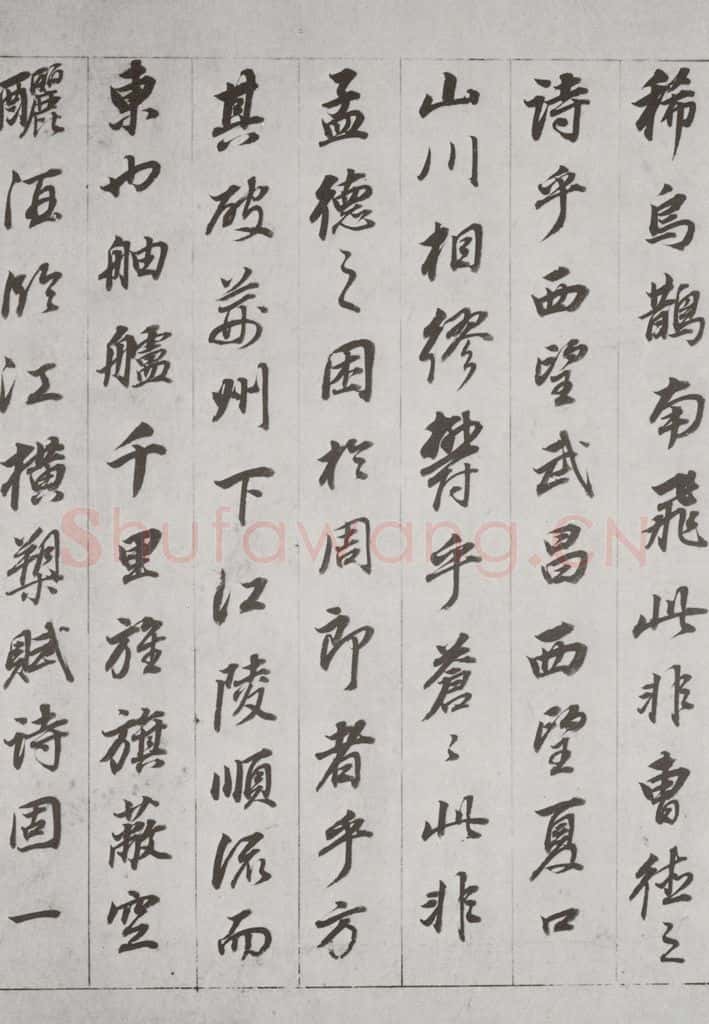 稀烏鵲南飛此非曹德之
詩乎西望武昌西望夏口
山川相繆鬱乎蒼〻此非
孟德之困於周郎者乎方
其破荊州下江陵順流而
東也舳艫千里旌旗蔽空
釃酒臨江橫槊賦詩固一
Shufawang.CN